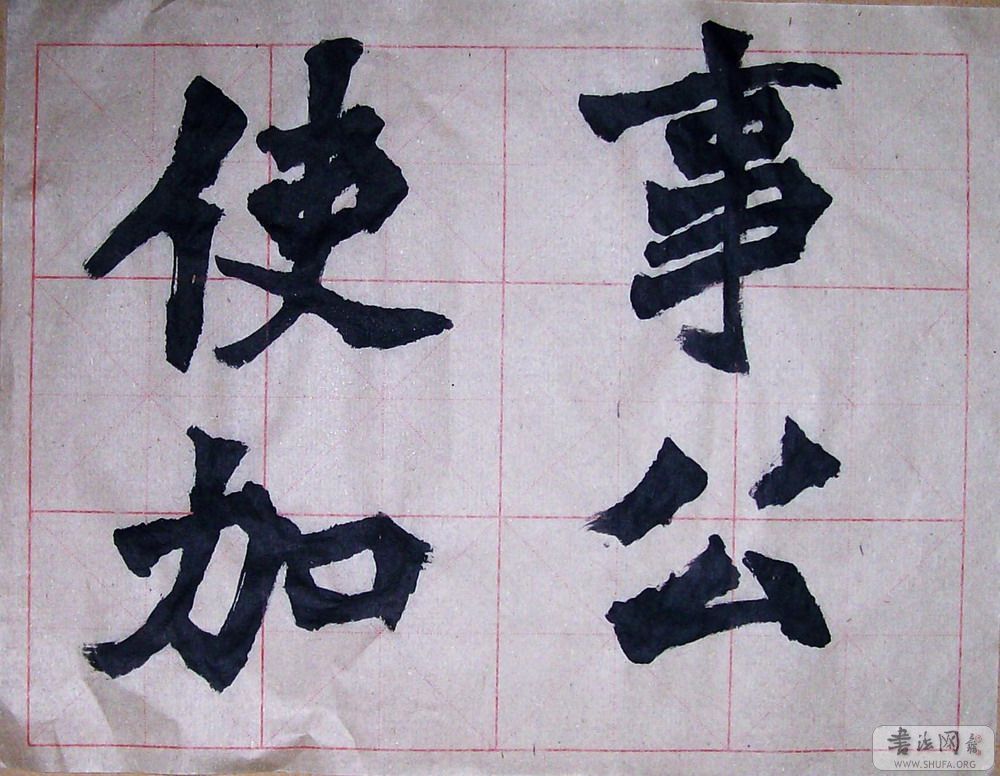 事公
使加
书法网
WWW.SHUFA.ORG